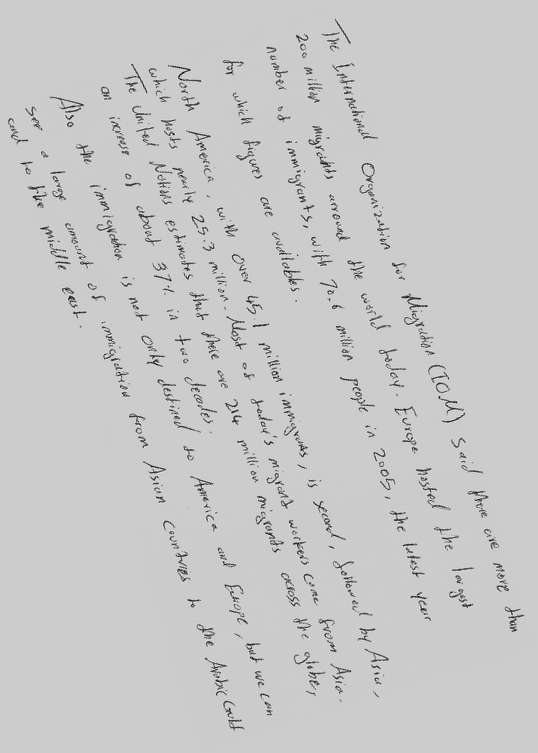 The International Organization for Migration (IOM) said there are more than
200 million migrants arround the world today. Europe hosted the largest
number of immigrants, with 70.6 million people in 2005, the latest year
for which figures are availables.
North America, with over 45.1 million immigrants, is second, followed by Asia,
which hosts nearly 25.3 million. Most of today's migrant workers come from Asia.
The United Nations estimates that there are 214 million migrants across the globe,
an increase of about 37% in two decades.
Also the immigration is not only destined to America and Europe, but we can
see a large amount of immigration from Asian countries to the Arabic Gulf
and to the middle east.